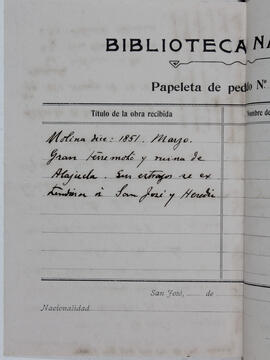 BIBLIOTECA NA
Papeleta de pedido Nº
Título de la obra recibida
Nombre de
Molina dice: 1851. Marzo.
Gran terremoto y ruina de
Alajuela. Sus estragos se ex
tendieron á San José y Heredia
San José, de
Nacionalidad